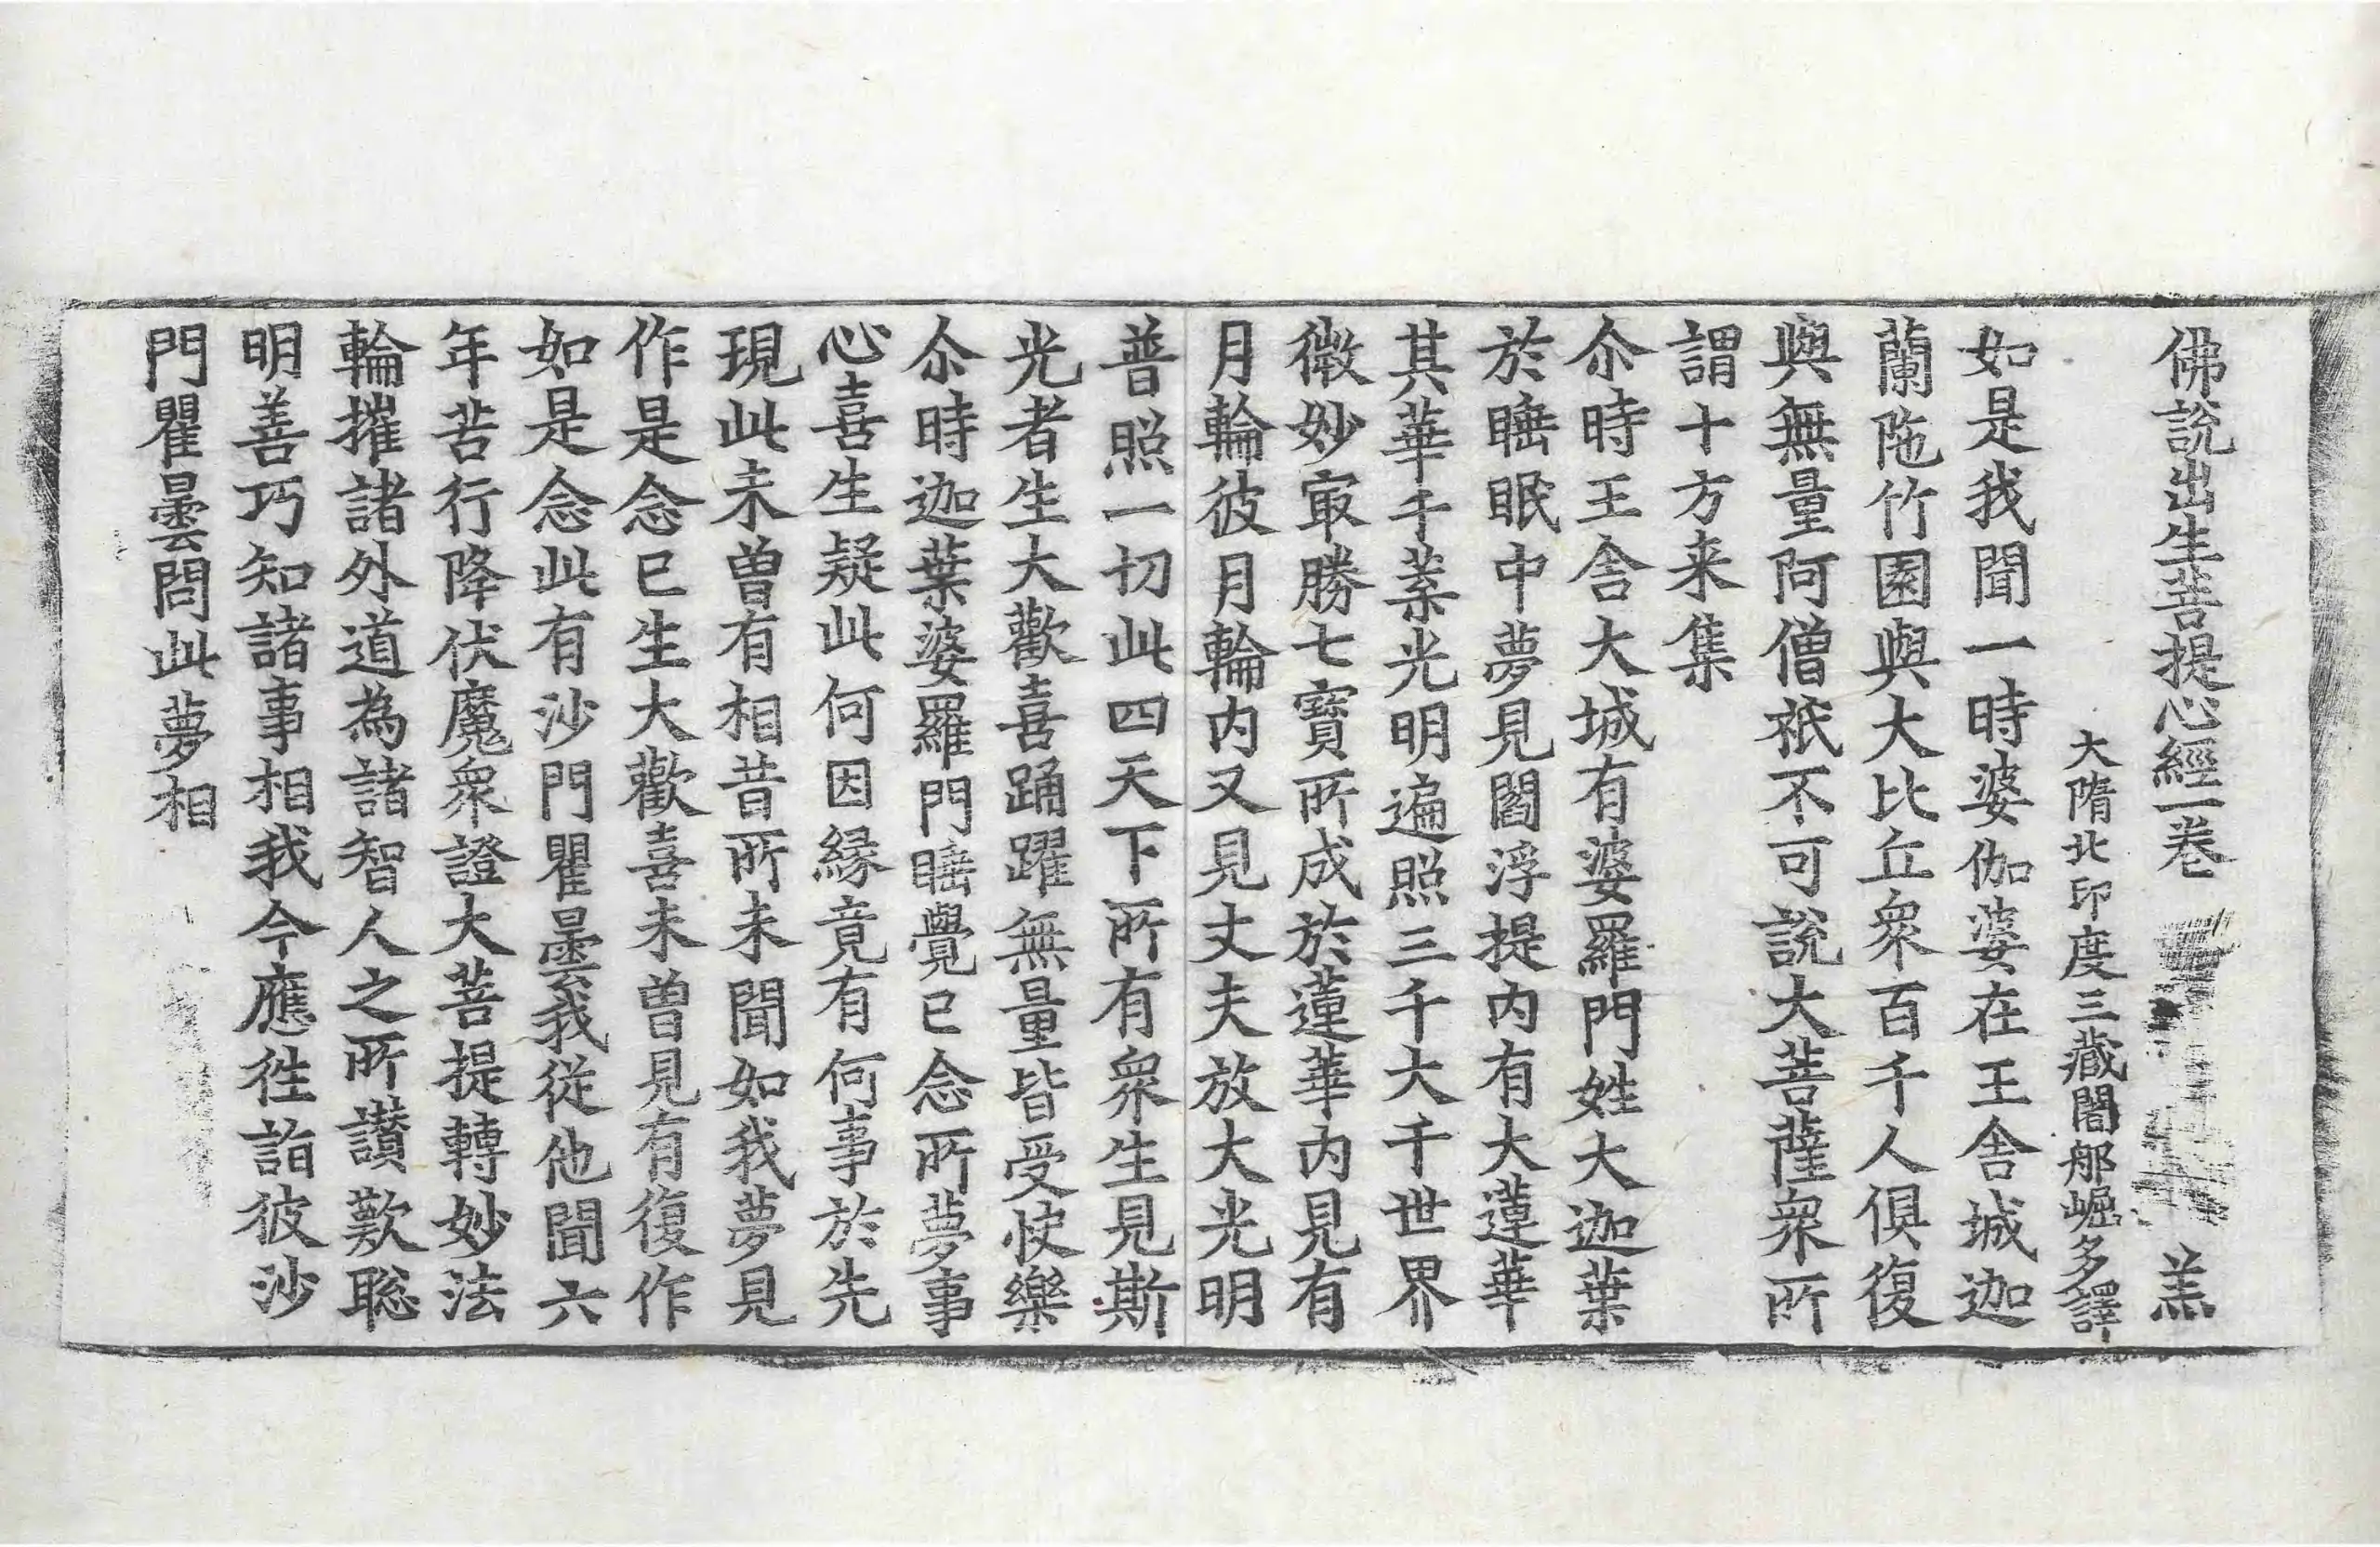 佛說出生菩提心經一卷 羔
大隋北印度三藏闍那崛多譯
如是我聞一時婆伽婆在王舍城迦
蘭陁竹園與大比丘衆百千人俱復
與無量阿僧祇不可說大菩薩衆所
謂十方来集
尒時王舍大城有婆羅門姓大迦葉
於睡眠中夢見閻浮提内有大蓮華
其華千葉光明遍照三千大千世界
微妙㝡勝七寶所成於蓮華内見有
月輪彼月輪内又見丈夫放大光明
普照一切此四天下所有衆生見斯
光者生大歡喜踊躍無量皆受快樂
尒時迦葉婆羅門睡覺已念所夢事
心喜生疑此何因緣竟有何事於先
現此未曽有相昔所未聞如我夢見
作是念已生大歡喜未曽見有復作
如是念此有沙門瞿曇我從他聞六
年苦行降伏魔衆證大菩提轉妙法
輪摧諸外道為諸智人之所讃歎聡
明善巧知諸事相我今應徃詣彼沙
門瞿曇問此夢相